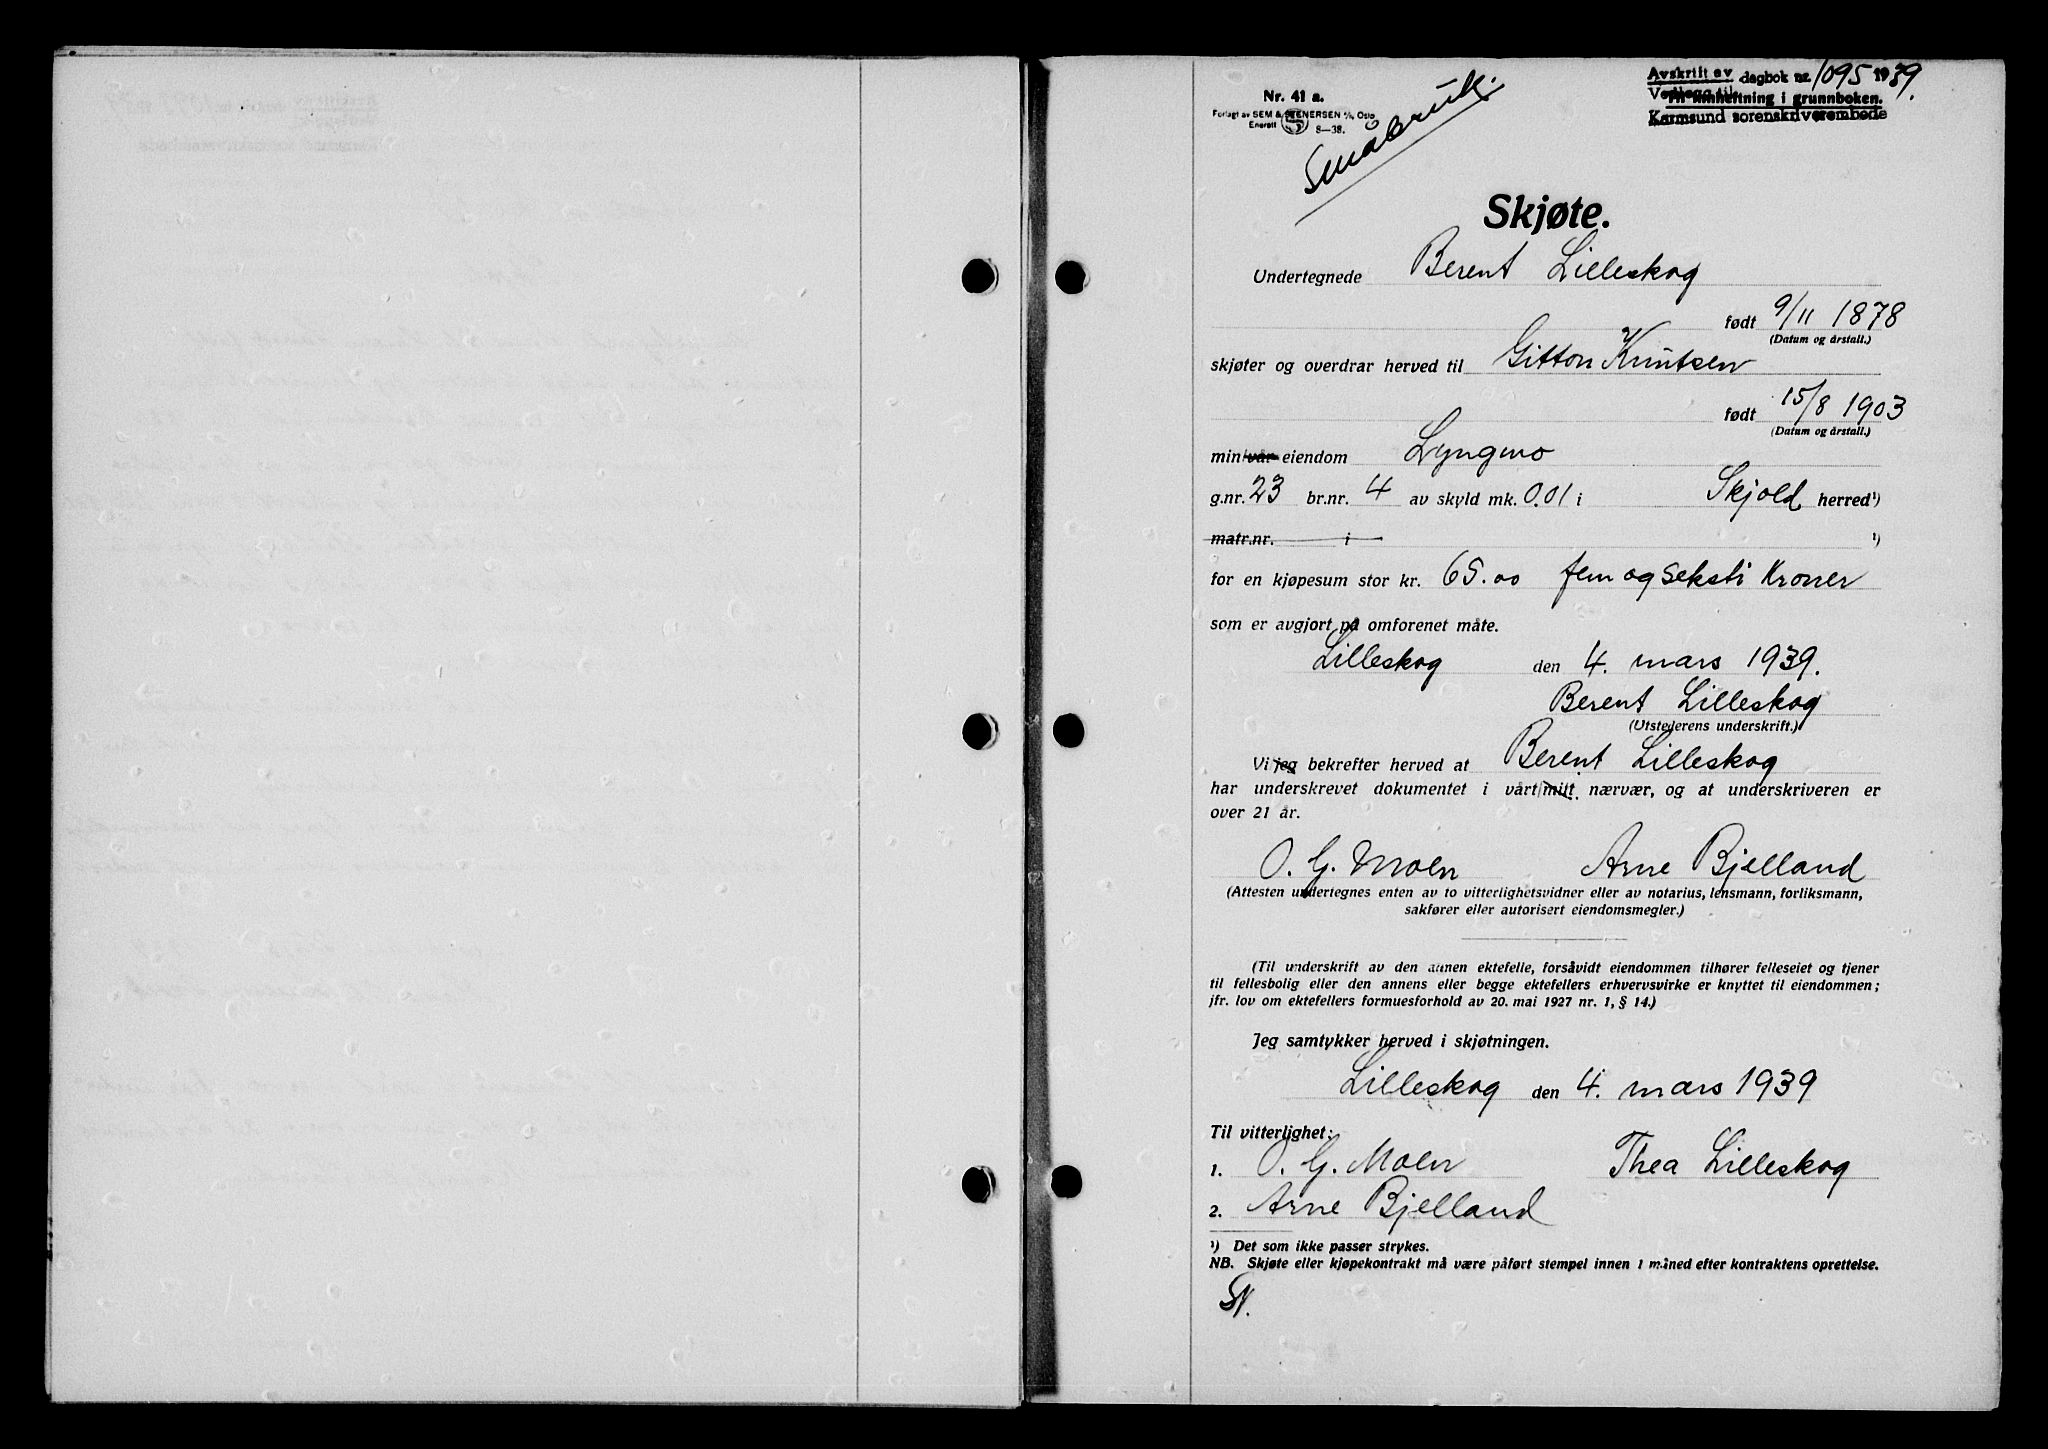 Nr. 41 a.
Forlagt av SEM & STENERSEN A/S, Oslo
Enerett S 8—38.
Småbruk.
Avskrift av dagbok nr. 1095 1939.
Vedlegg til
Til innheftning i grunnboken.
Karmsund sorenskriverembede
Skjøte.
Undertegnede Berent Lilleskog
født 9/11 1878
(Datum og årstall.)
skjøter og overdrar herved til Gitton Knutsen
født 15/8 1903
(Datum og årstall.)
min/vår eiendom Lyngmo
g.nr. 23 br.nr. 4 av skyld mk. 0.01 i Skjold herred¹)
matr.nr. i ¹)
for en kjøpesum stor kr. 65.00 fem og seksti Kroner
som er avgjort på omforenet måte.
Lilleskog den 4. mars 1939.
Berent Lilleskog
(Utstederens underskrift.)
Vi/jeg bekrefter herved at Berent Lilleskog
har underskrevet dokumentet i vårt/mitt nærvær, og at underskriveren er
over 21 år.
O. G. Moen Arne Bjelland
(Attesten undertegnes enten av to vitterlighetsvidner eller av notarius, lensmann, forliksmann,
sakfører eller autorisert eiendomsmegler.)
(Til underskrift av den annen ektefelle, forsåvidt eiendommen tilhører felleseiet og tjener
til fellesbolig eller den annens eller begge ektefellers erhvervsvirke er knyttet til eiendommen;
jfr. lov om ektefellers formuesforhold av 20. mai 1927 nr. 1, § 14.)
Jeg samtykker herved i skjøtningen.
Lilleskog den 4. mars 1939
Til vitterlighet:
1. O. G. Moen Thea Lilleskog
2. Arne Bjelland
¹) Det som ikke passer strykes.
NB. Skjøte eller kjøpekontrakt må være påført stempel innen 1 måned efter kontraktens oprettelse.